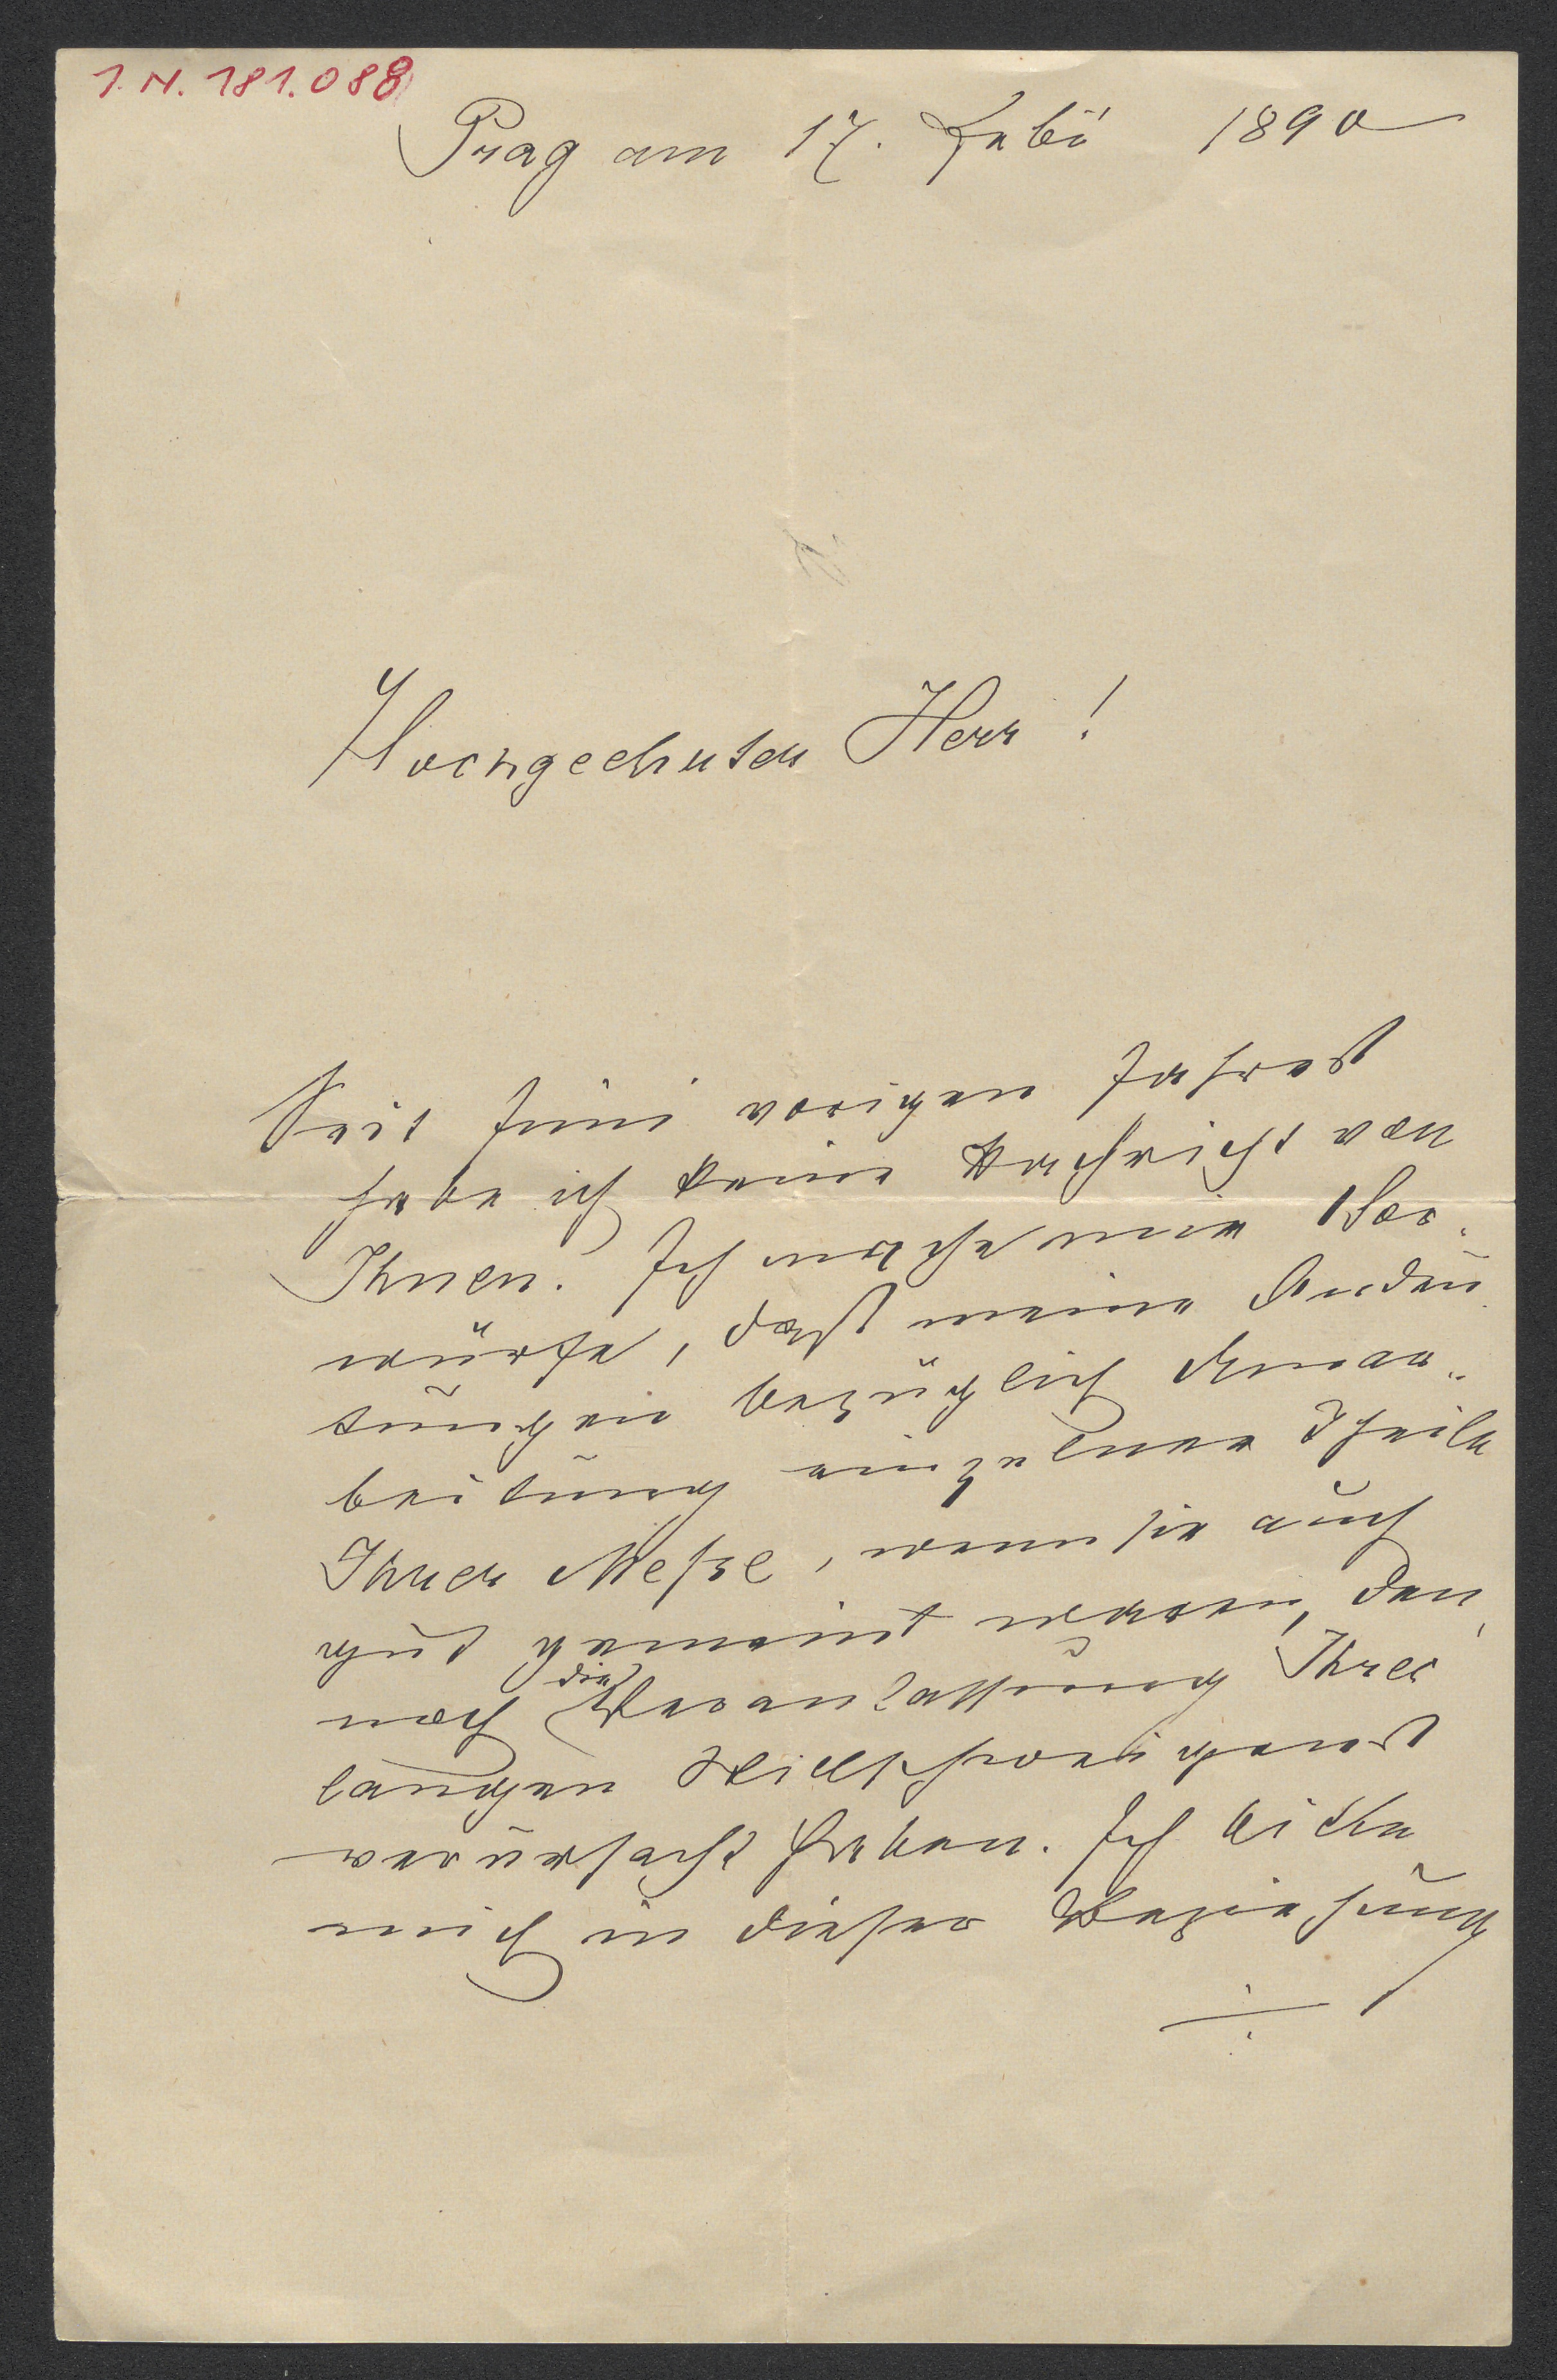 I.N. 181.088
Prag am 17. Feb. 1890
Hochgeehrter Herr!
Seit Juni vorigen Jahres
habe ich keine Nachricht von
Ihnen. Ich mache mir Vor-
würfe, daß meine Andeu-
tungen bezüglich Umar-
beitung einzelner Theile
Ihrer Meße, wenn sie auch
gut gemeint waren, den-
noch die Veranlassung Ihres
langen Stillschweigens
verursacht haben. Ich bitte
mich in dieser Beziehung